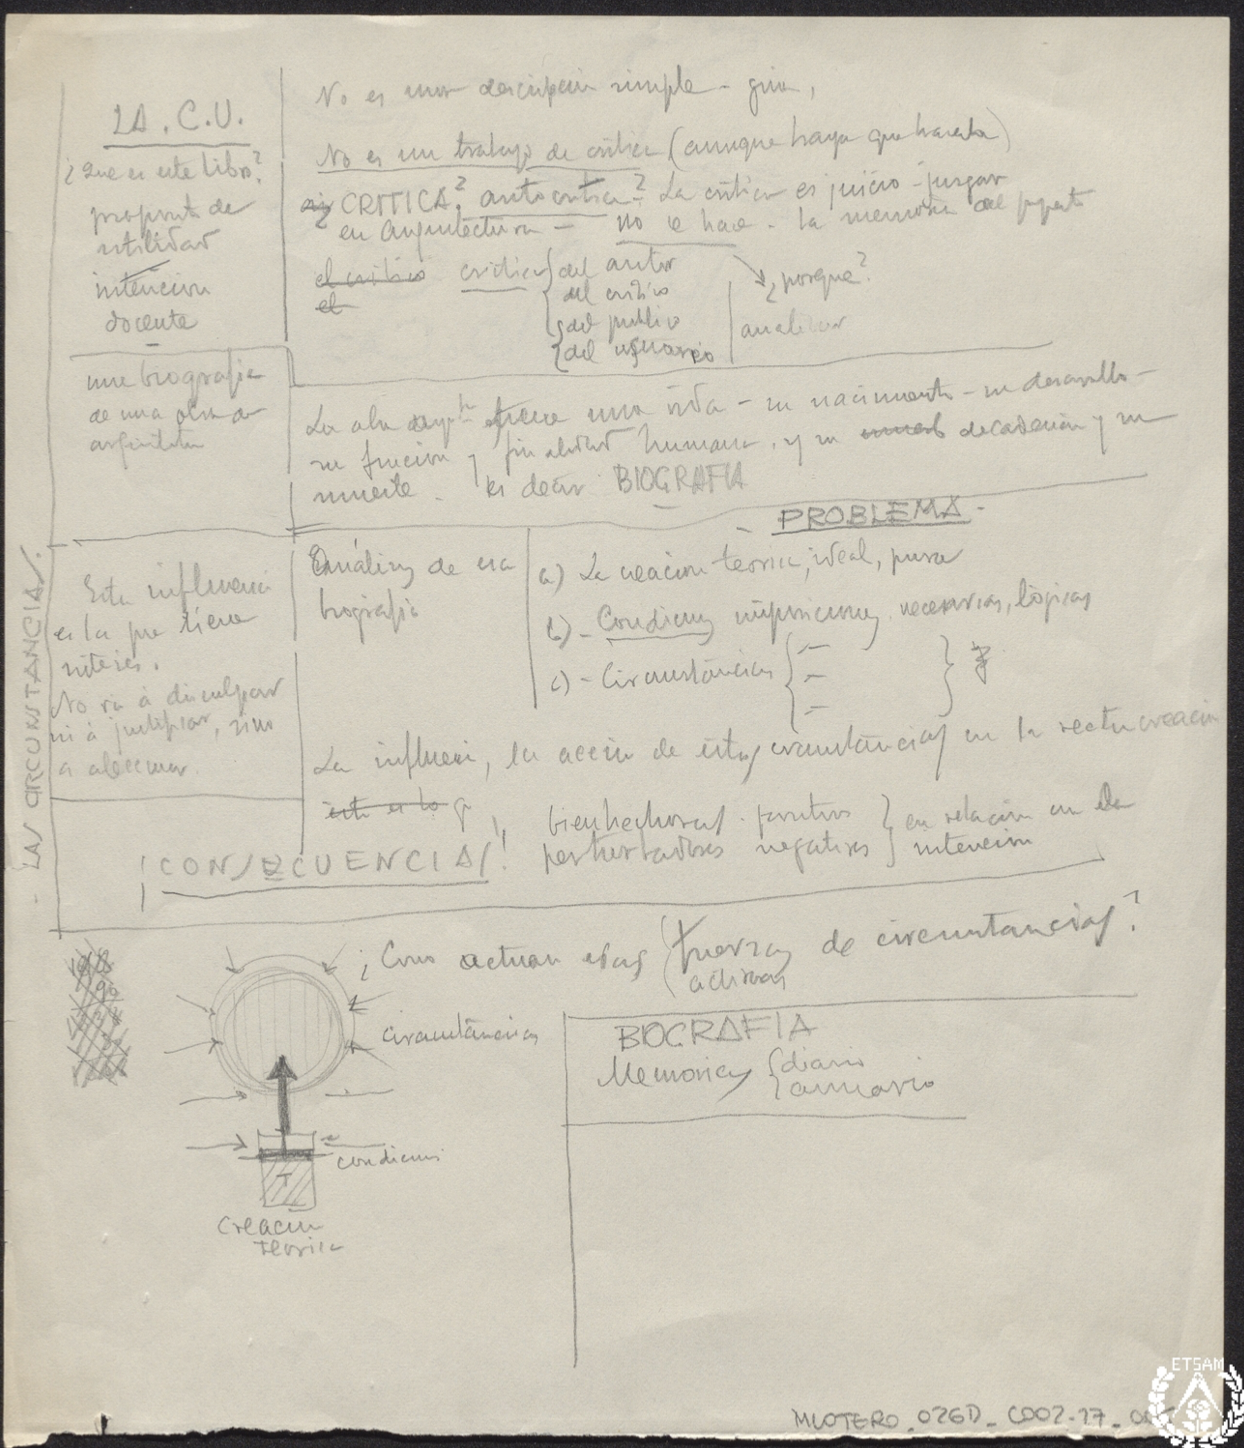 LA. C.U.
¿Que es este libro?
proposito de
utilidad
intencion
docente
No es una descripcion simple - guia,
No es un trabajo de critica (aunque haya que hacerla)
¿CRITICA? autocritica? La critica es juicio - juzgar
en Arquitectura - no se hace - la memoria del proyecto
el critico critica del autor
el
del critico
del publico
del usuario
¿porque?
analizar
una biografia
de una obra de
arquitectura
La obra tiene una vida - su nacimiento - su desarrollo -
su funcion y finalidad humana, y su decadencia y su
muerte - Es decir BIOGRAFIA
- PROBLEMA -
- LAS CIRCUNSTANCIAS.
Esta influencia
es la que tiene
interes.
No va á disculpar
ni á justificar, sino
a aleccionar.
Análisis de esa
biografia
a) La creacion teorica, ideal, pura
b) - Condiciones imposiciones, necesarias, lógicas
c) - Circunstáncias
La influencia, la accion de estas circunstáncias en la recta creacion
esta es la q
¡CONSECUENCIAS!
bienhechoras - positivas
perturbadoras negativas
en relacion con la
intencion
¿Como actuan esas fuerzas de circunstancias?
activas
circunstáncias
condiciones
T
Creacion
teorica
BIOGRAFIA
Memorias diario
anuario
MLOTERO_026D_C002-17_
ETSAM